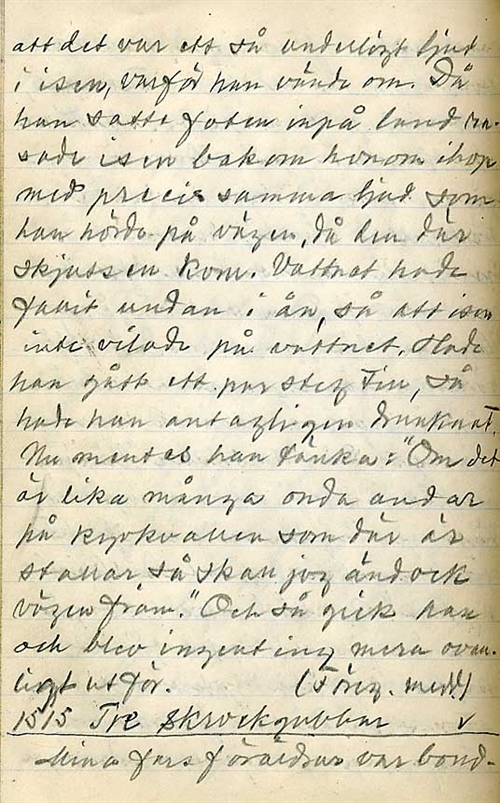 att det var ett så underligt ljud
i isen, varför han vände om. Då
han satte foten inpå land ra-
sade isen bakom honom ihop
med precis samma ljud som
han hörde på vägen, då den där
skjussen kom. Vattnet hade
farit undan i ån, så att isen
inte vilade på vattnet. Hade
han gått ett par steg till, så
hade han antagligen drunknat.
Nu mentes han tänka: "Om det
är lika många onda andar
på kyrkvallen som där är
stallar, så skall jag ändock
vägen fram." Och så gick han
och blev ingenting mera ovan-
ligt utför. (Föreg. medd)
1515 Tre Skrockgubbar v
Mina fars föräldrar var bond-